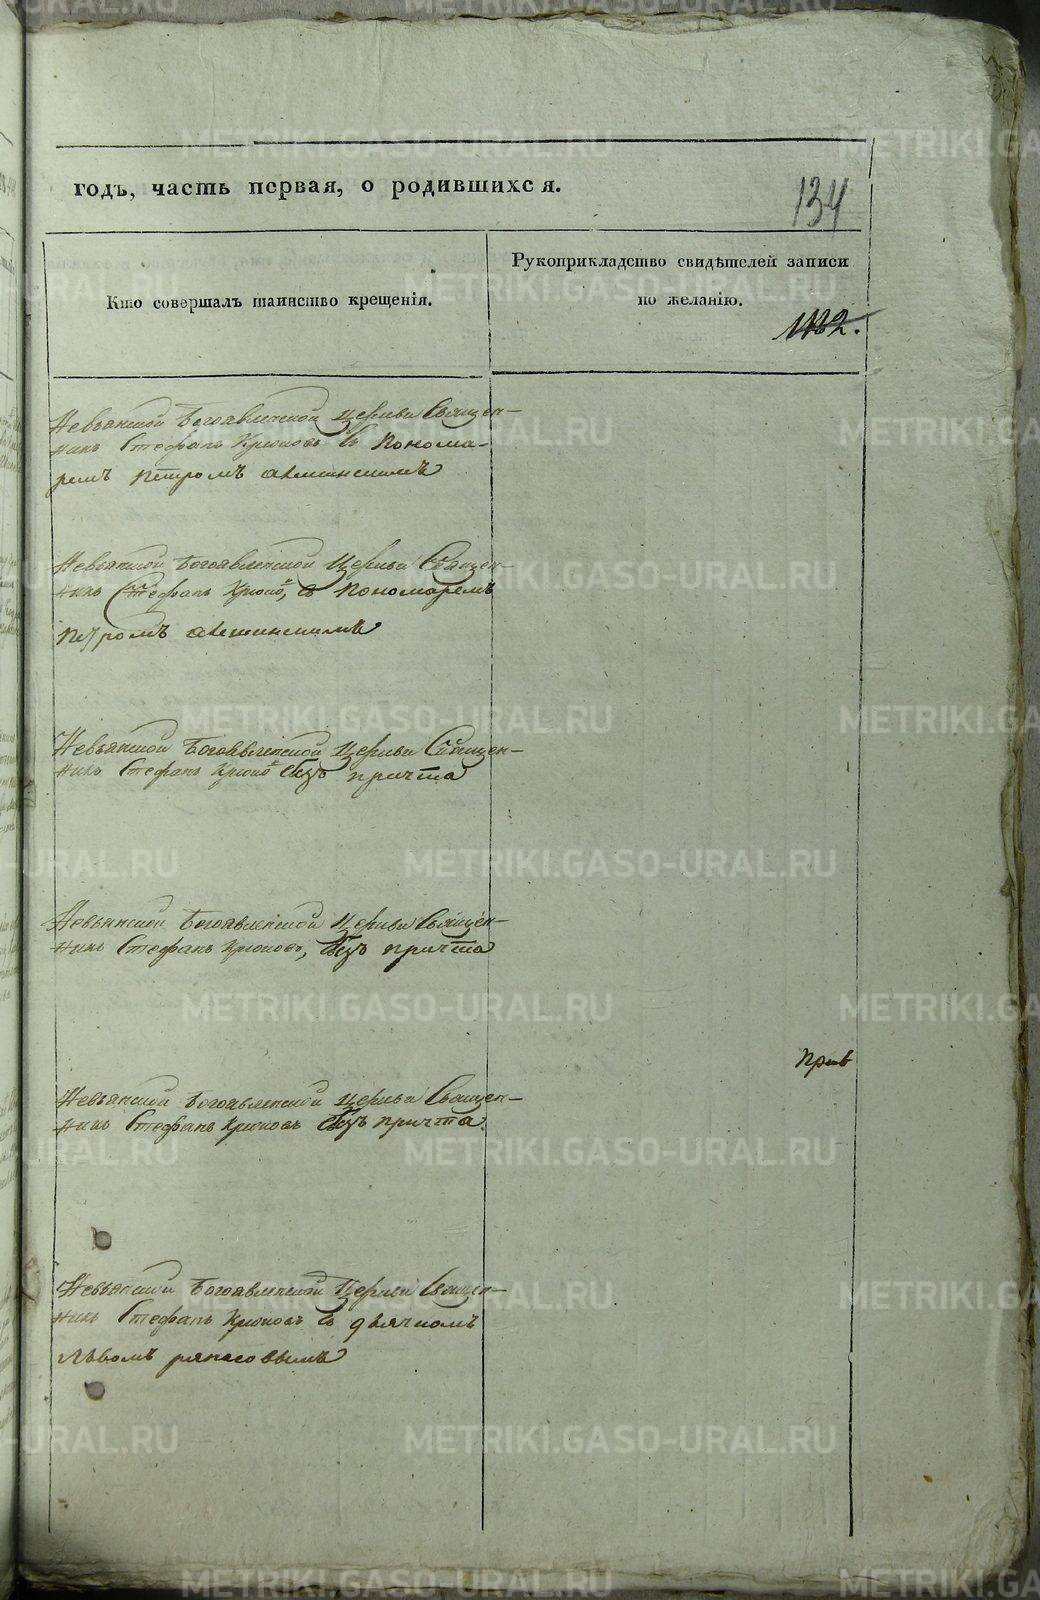 годъ, часть первая, о родившихся.
134
Кто совершалъ таинство крещенія.
Рукоприкладство свидѣтелей записи
по желанію.
1182.
Невьянской Богоявленской церкви Священ-
никъ Стефанъ Крюковъ съ пономa-
ремъ Петромъ
Невьянской Богоявленской церкви Священ-
никъ Стефанъ Крюко, съ пономаремъ
Петромъ
Невьянской Богоявленской церкви Священ-
никъ Стефанъ Крюко безъ причта
Невьянской Богоявленской церкви Священ-
никъ Стефанъ Крюковъ, безъ причта
Невьянской Богоявленской церкви Священ-
никъ Стефанъ Крюковъ безъ причта.
Невьянской Богоявленской церкви Священ-
никъ Стефанъ Крюковъ съ дьячкомъ
Львомъ
METRIKI.GASO-URAL.RU